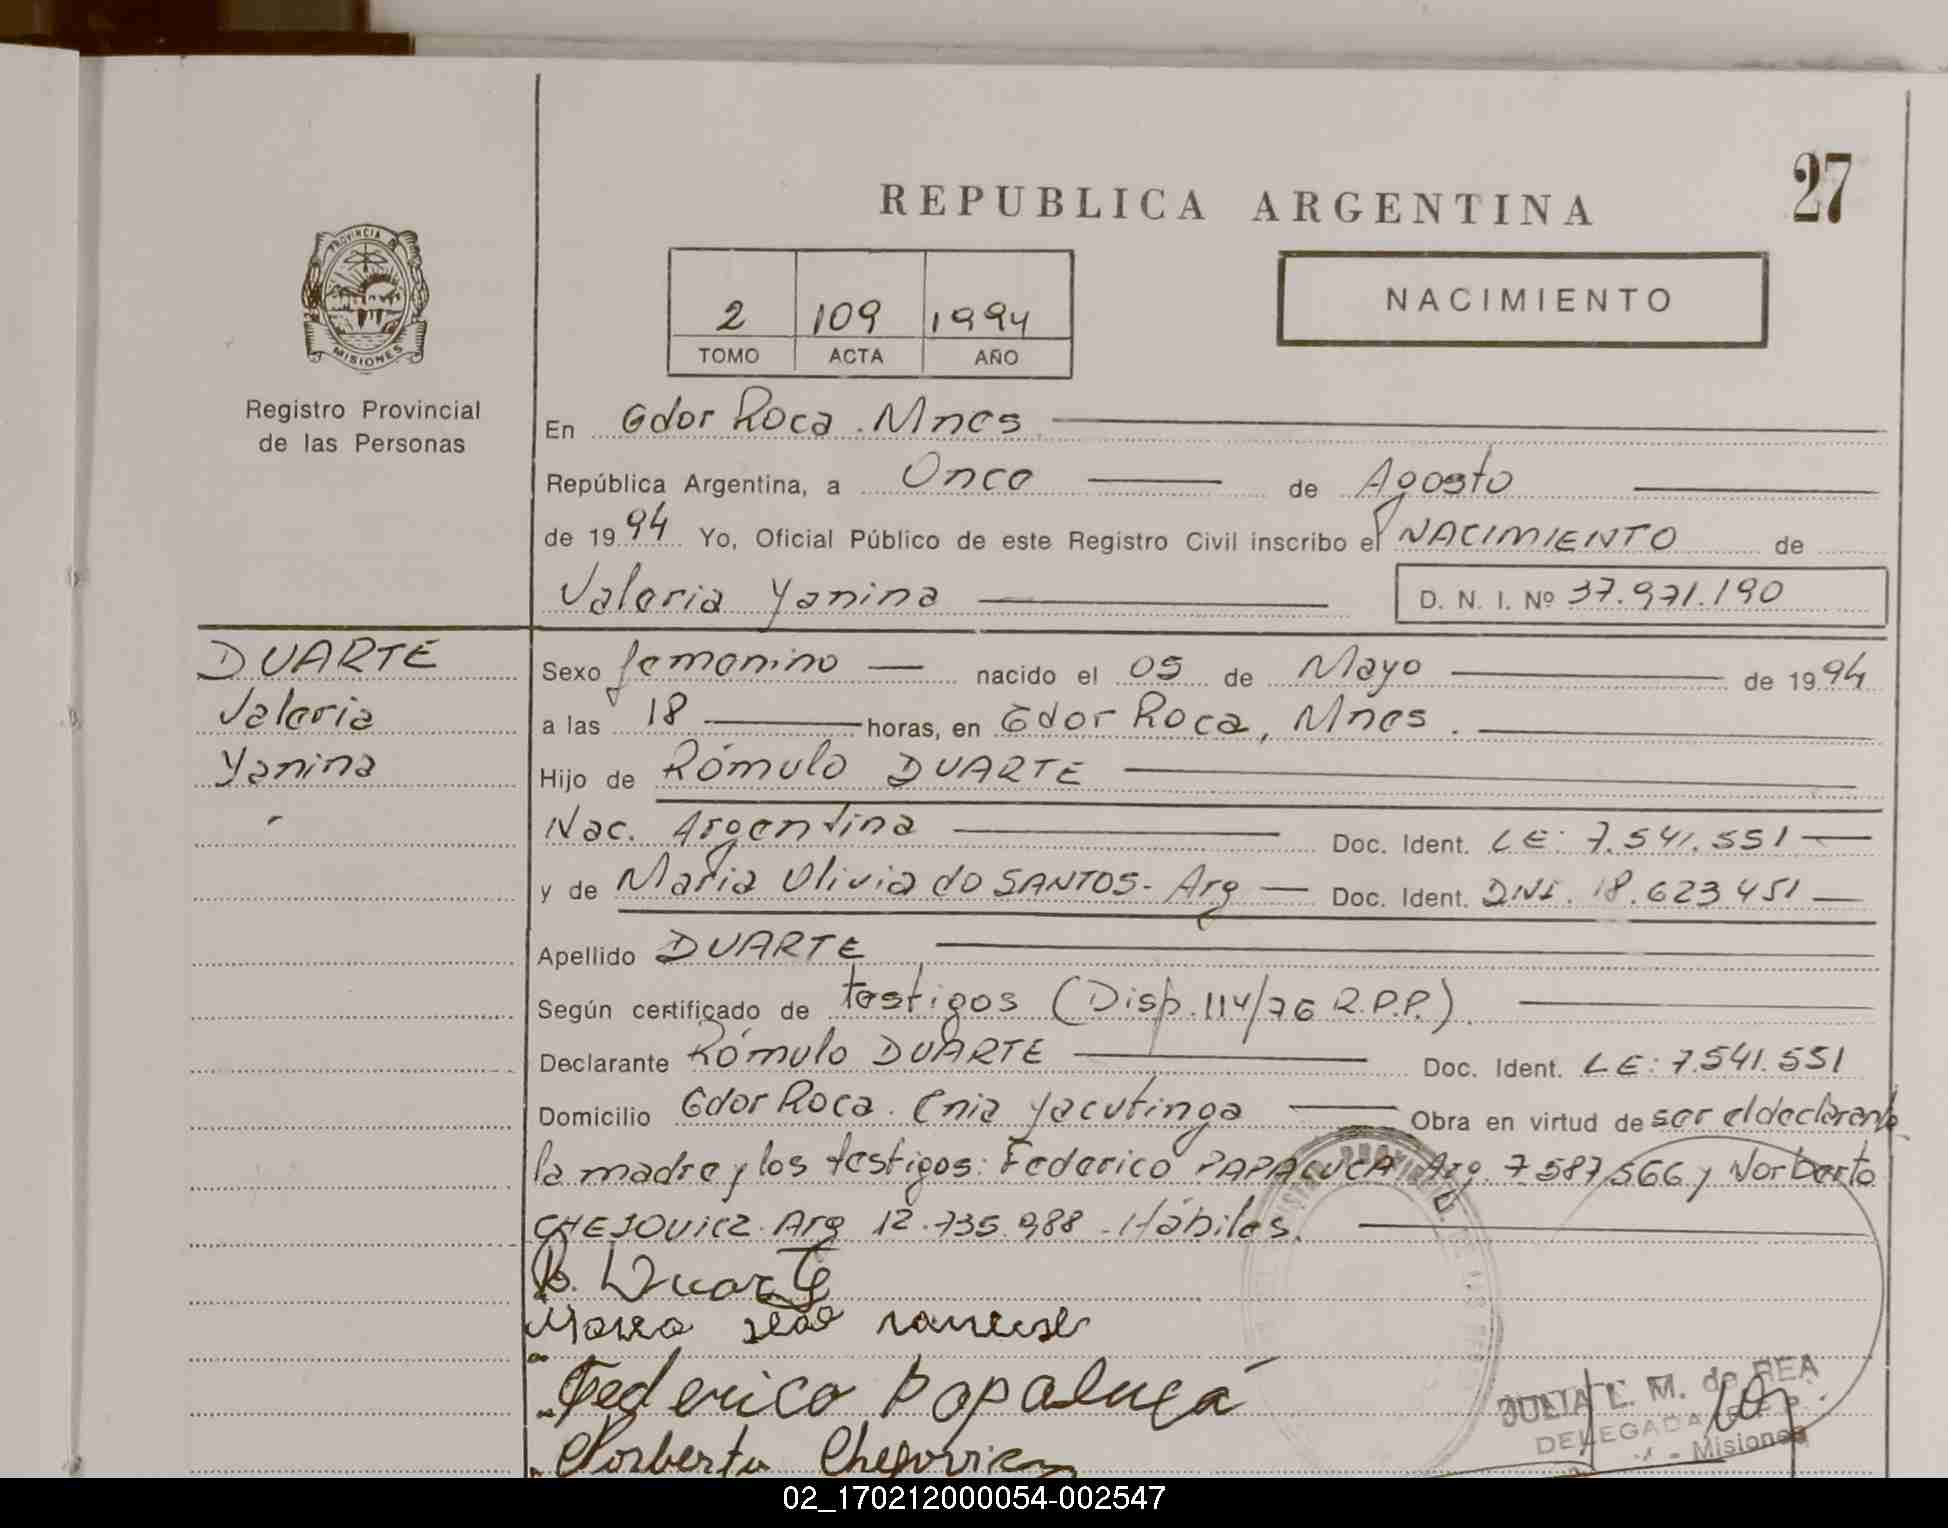 27
REPUBLICA ARGENTINA
PROVINCIA DE
MISIONES
Registro Provincial
de las Personas
2 109 1994
TOMO ACTA AÑO
NACIMIENTO
En Gdor Roca. Mnes
República Argentina, a Once de Agosto
de 1994 Yo, Oficial Público de este Registro Civil inscribo el NACIMIENTO de
Valeria Yanina D. N. I. Nº 37.971.190
DUARTE
Valeria
Yanina
Sexo femenino nacido el 05 de Mayo de 1994
a las 18 horas, en Gdor Roca, Mnes.
Hijo de Rómulo DUARTE
Nac. Argentina Doc. Ident. LE: 7.541.551
y de Maria Olivia do SANTOS - Arg Doc. Ident. DNI. 18.623.451
Apellido DUARTE
Según certificado de testigos (Disp. 114/76 R.P.P.).
Declarante Rómulo DUARTE Doc. Ident. LE: 7.541.551
Domicilio Gdor Roca. Cnia Yacutinga Obra en virtud de ser el declarante
la madre y los testigos: Federico PAPALUCA Arg. 7587566 y Norberto
CHEJOVICZ. Arg 12.735.988 - Hábiles.
R. Duarte
Federico Papaluca
Norberto
JULIA L. M. de REA
DELEGADA R.P.P.
- Misiones
02_170212000054-002547